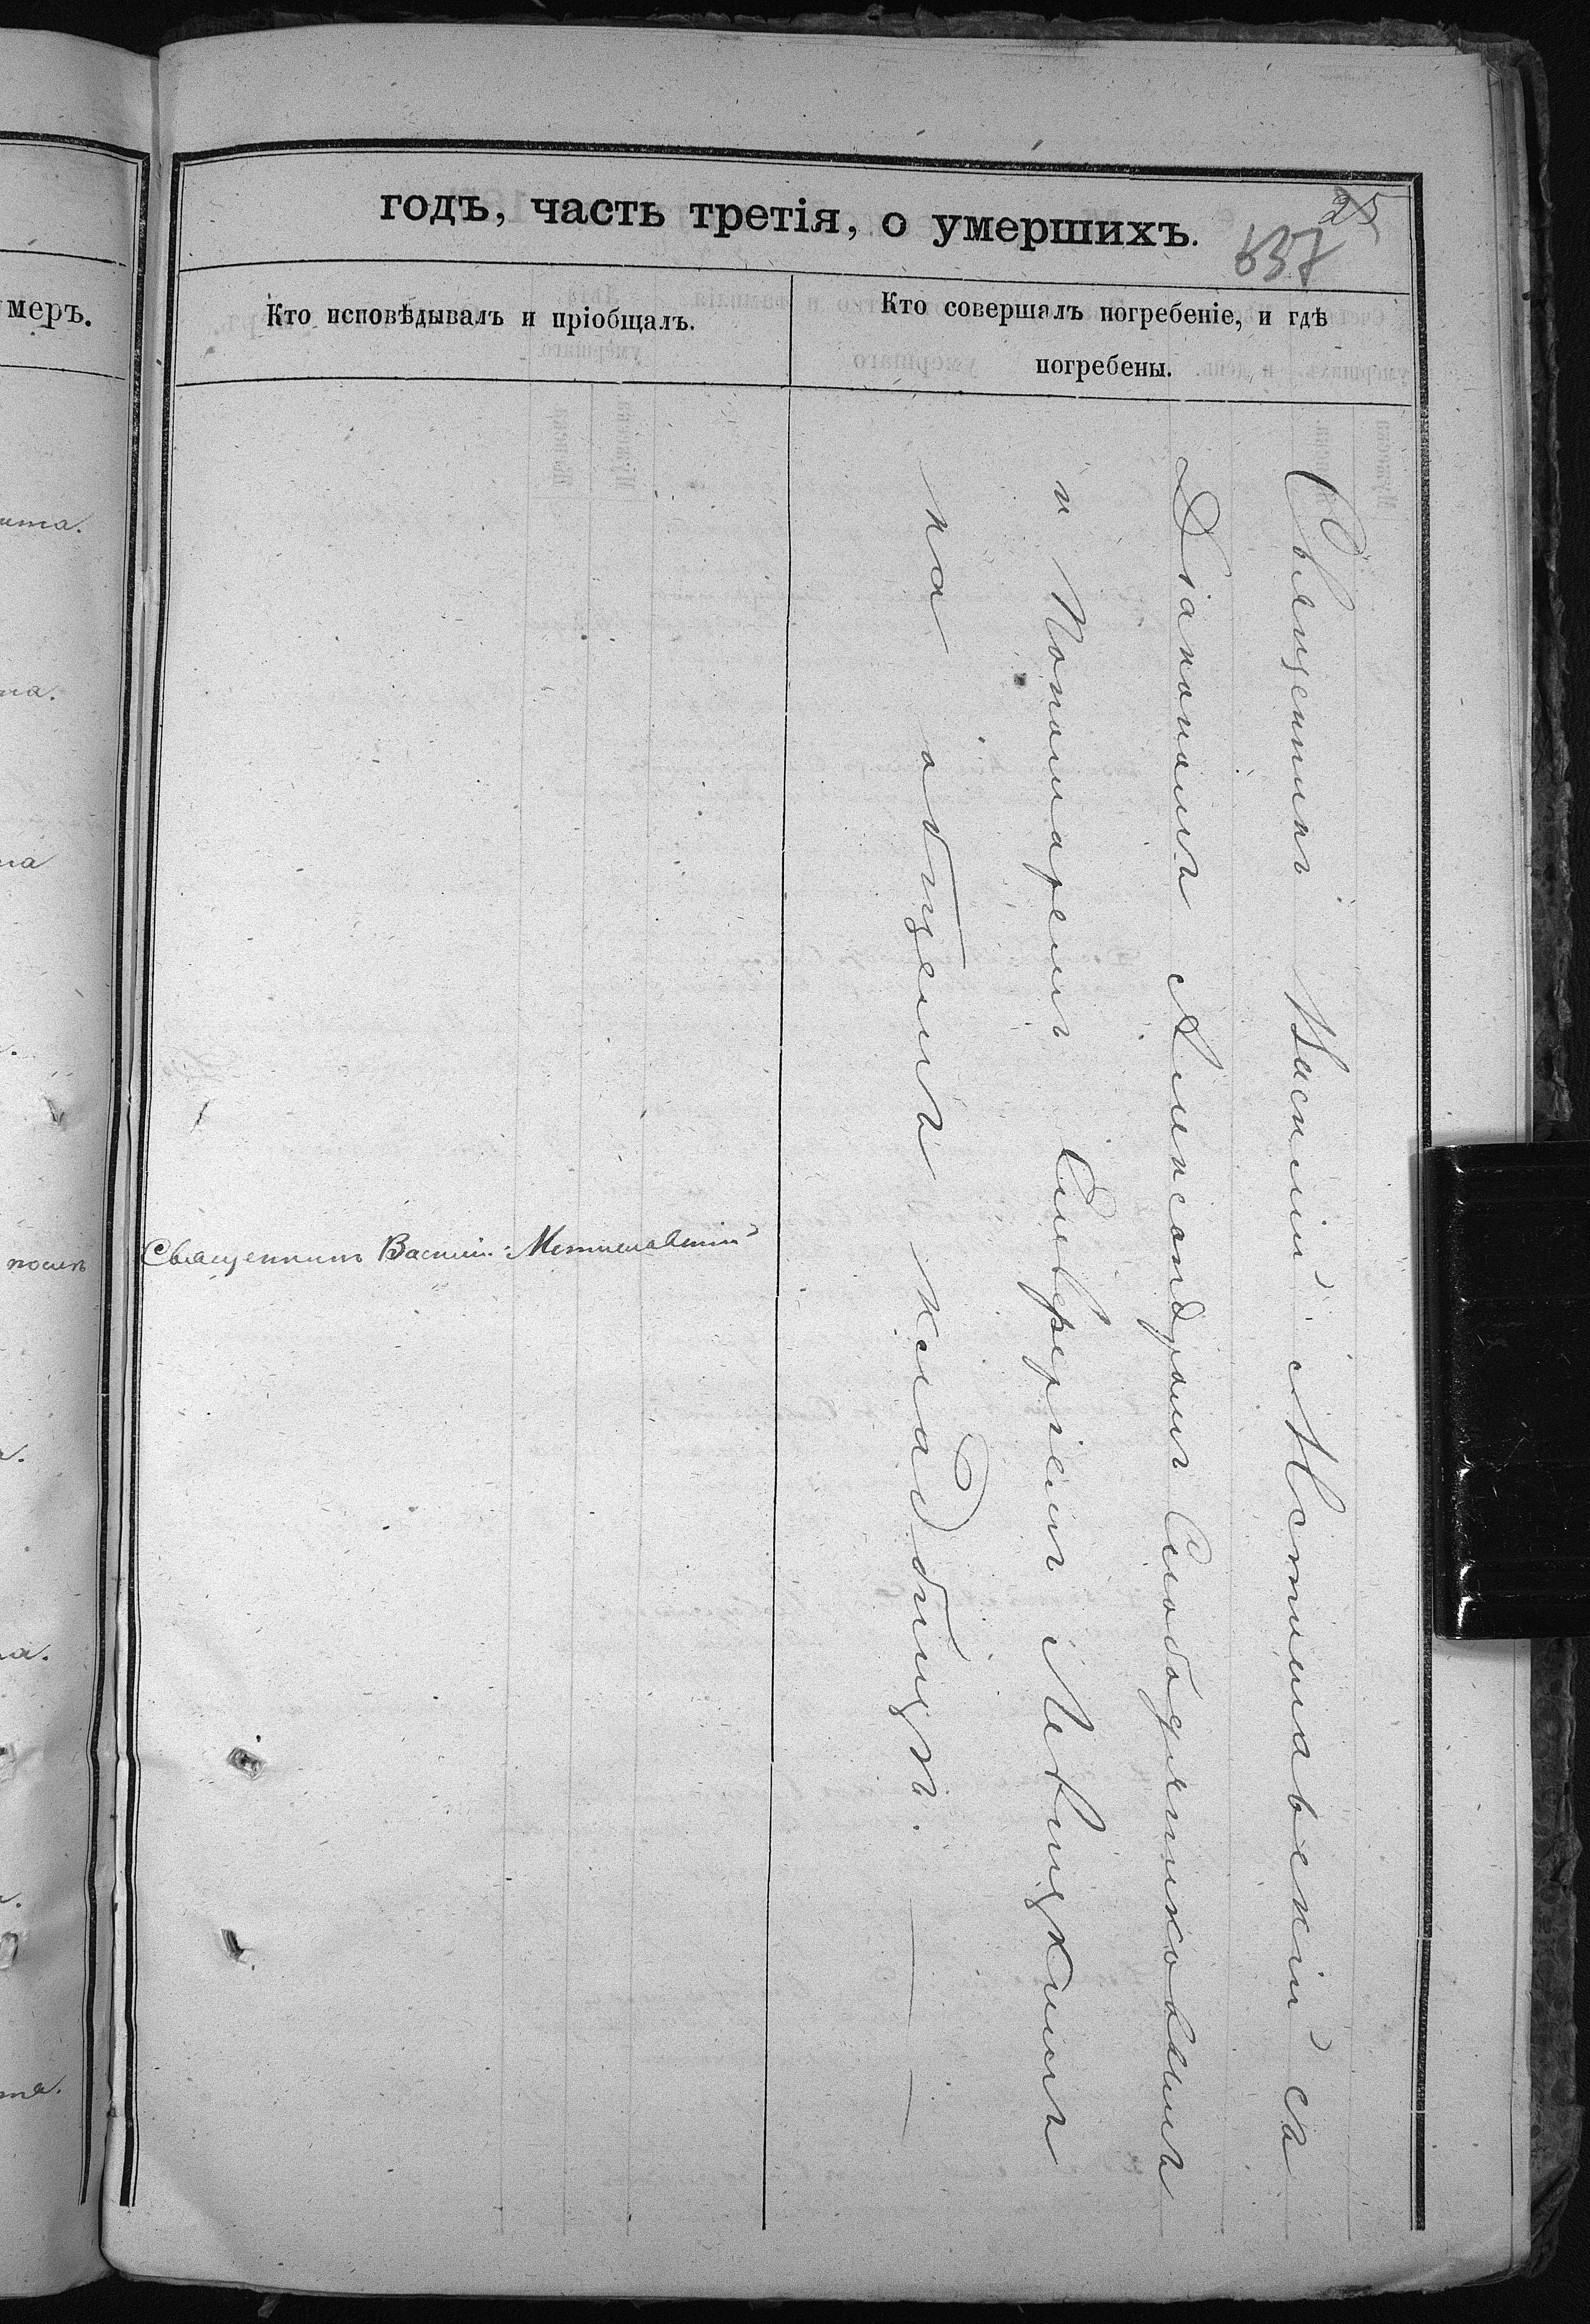 годъ, часть третія, о умершихъ.
25
637
меръ.
Кто исповѣдывалъ и пріобщалъ.
Кто совершалъ погребеніе, и гдѣ
погребены.
Священникъ Василій Мстиславскій
Священникъ Василій Мстиславскій съ
Діакономъ Александромъ Слободчиковымъ
и Пономаремъ Левицкимъ
на общемъ кладбищѣ.